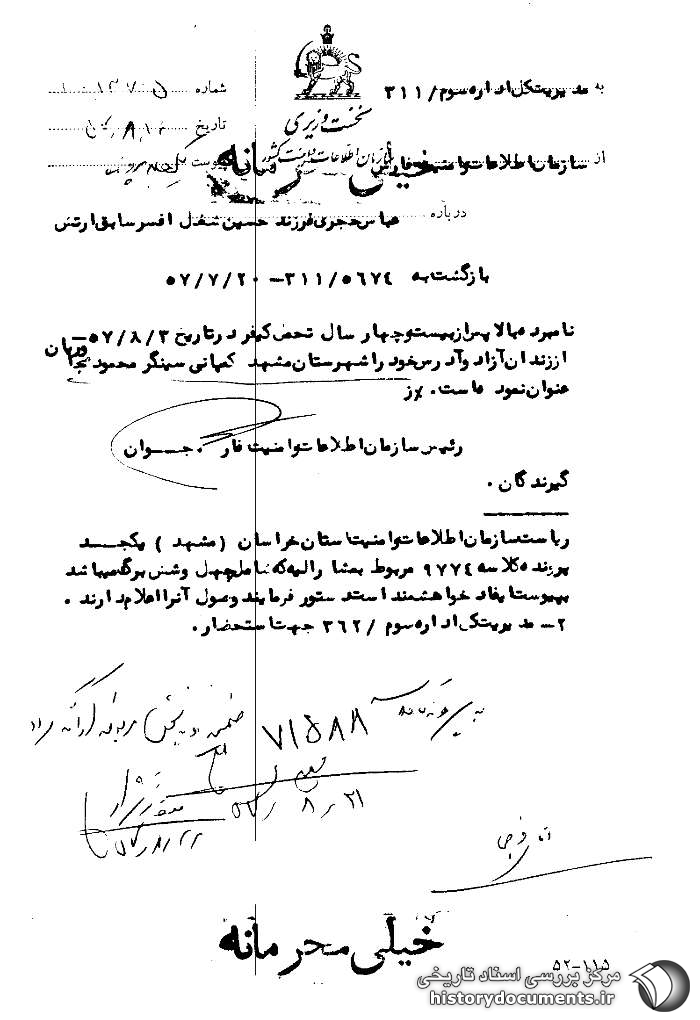 نخست وزیری
سازمان اطلاعات و امنیت کشور
خیلی محرمانه
به مدیریت کل اداره سوم / ۳۱۱
شماره
تاریخ
پیوست
از سازمان اطلاعات و امنیت فارس
درباره عباس حجری فرزند حسین شغل افسر سابق ارتش
بازگشت به ۳۱۱/۵۶۷۴ - ۵۷/۷/۲۰
نامبرده بالا پس از بیست و چهار سال تحمل کیفر در تاریخ ۵۷/۸/۳ -
از زندان آزاد و آدرس خود را شهرستان مشهد کمپانی سینگر محمود
عنوان نموده است. ز
رئیس سازمان اطلاعات و امنیت فارس . جـــوان
گیرندگان .
ریاست سازمان اطلاعات و امنیت استان خراسان ( مشهد ) یکجلــد
پرونده کلاسه ۹۷۷۴ مربوط به مشارالیه که شامل چهل و شش برگ میباشد
بپیوست ایفاد خواهشمند است دستور فرمایند وصول آنرا اعلام دارند .
۲- مدیریت کل اداره سوم / ۳۶۲ جهت استحضار .
۷۱۵۸۸
۲۱ ر ۸ ر ۵۷
خیلی محرمانه
۵۲-۱۱۵
مرکز بررسی اسناد تاریخی
historydocuments.ir